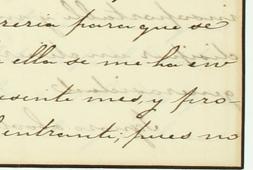 reria para que se
ella se me ha en
esente mes, y pro-
entrante, pues no